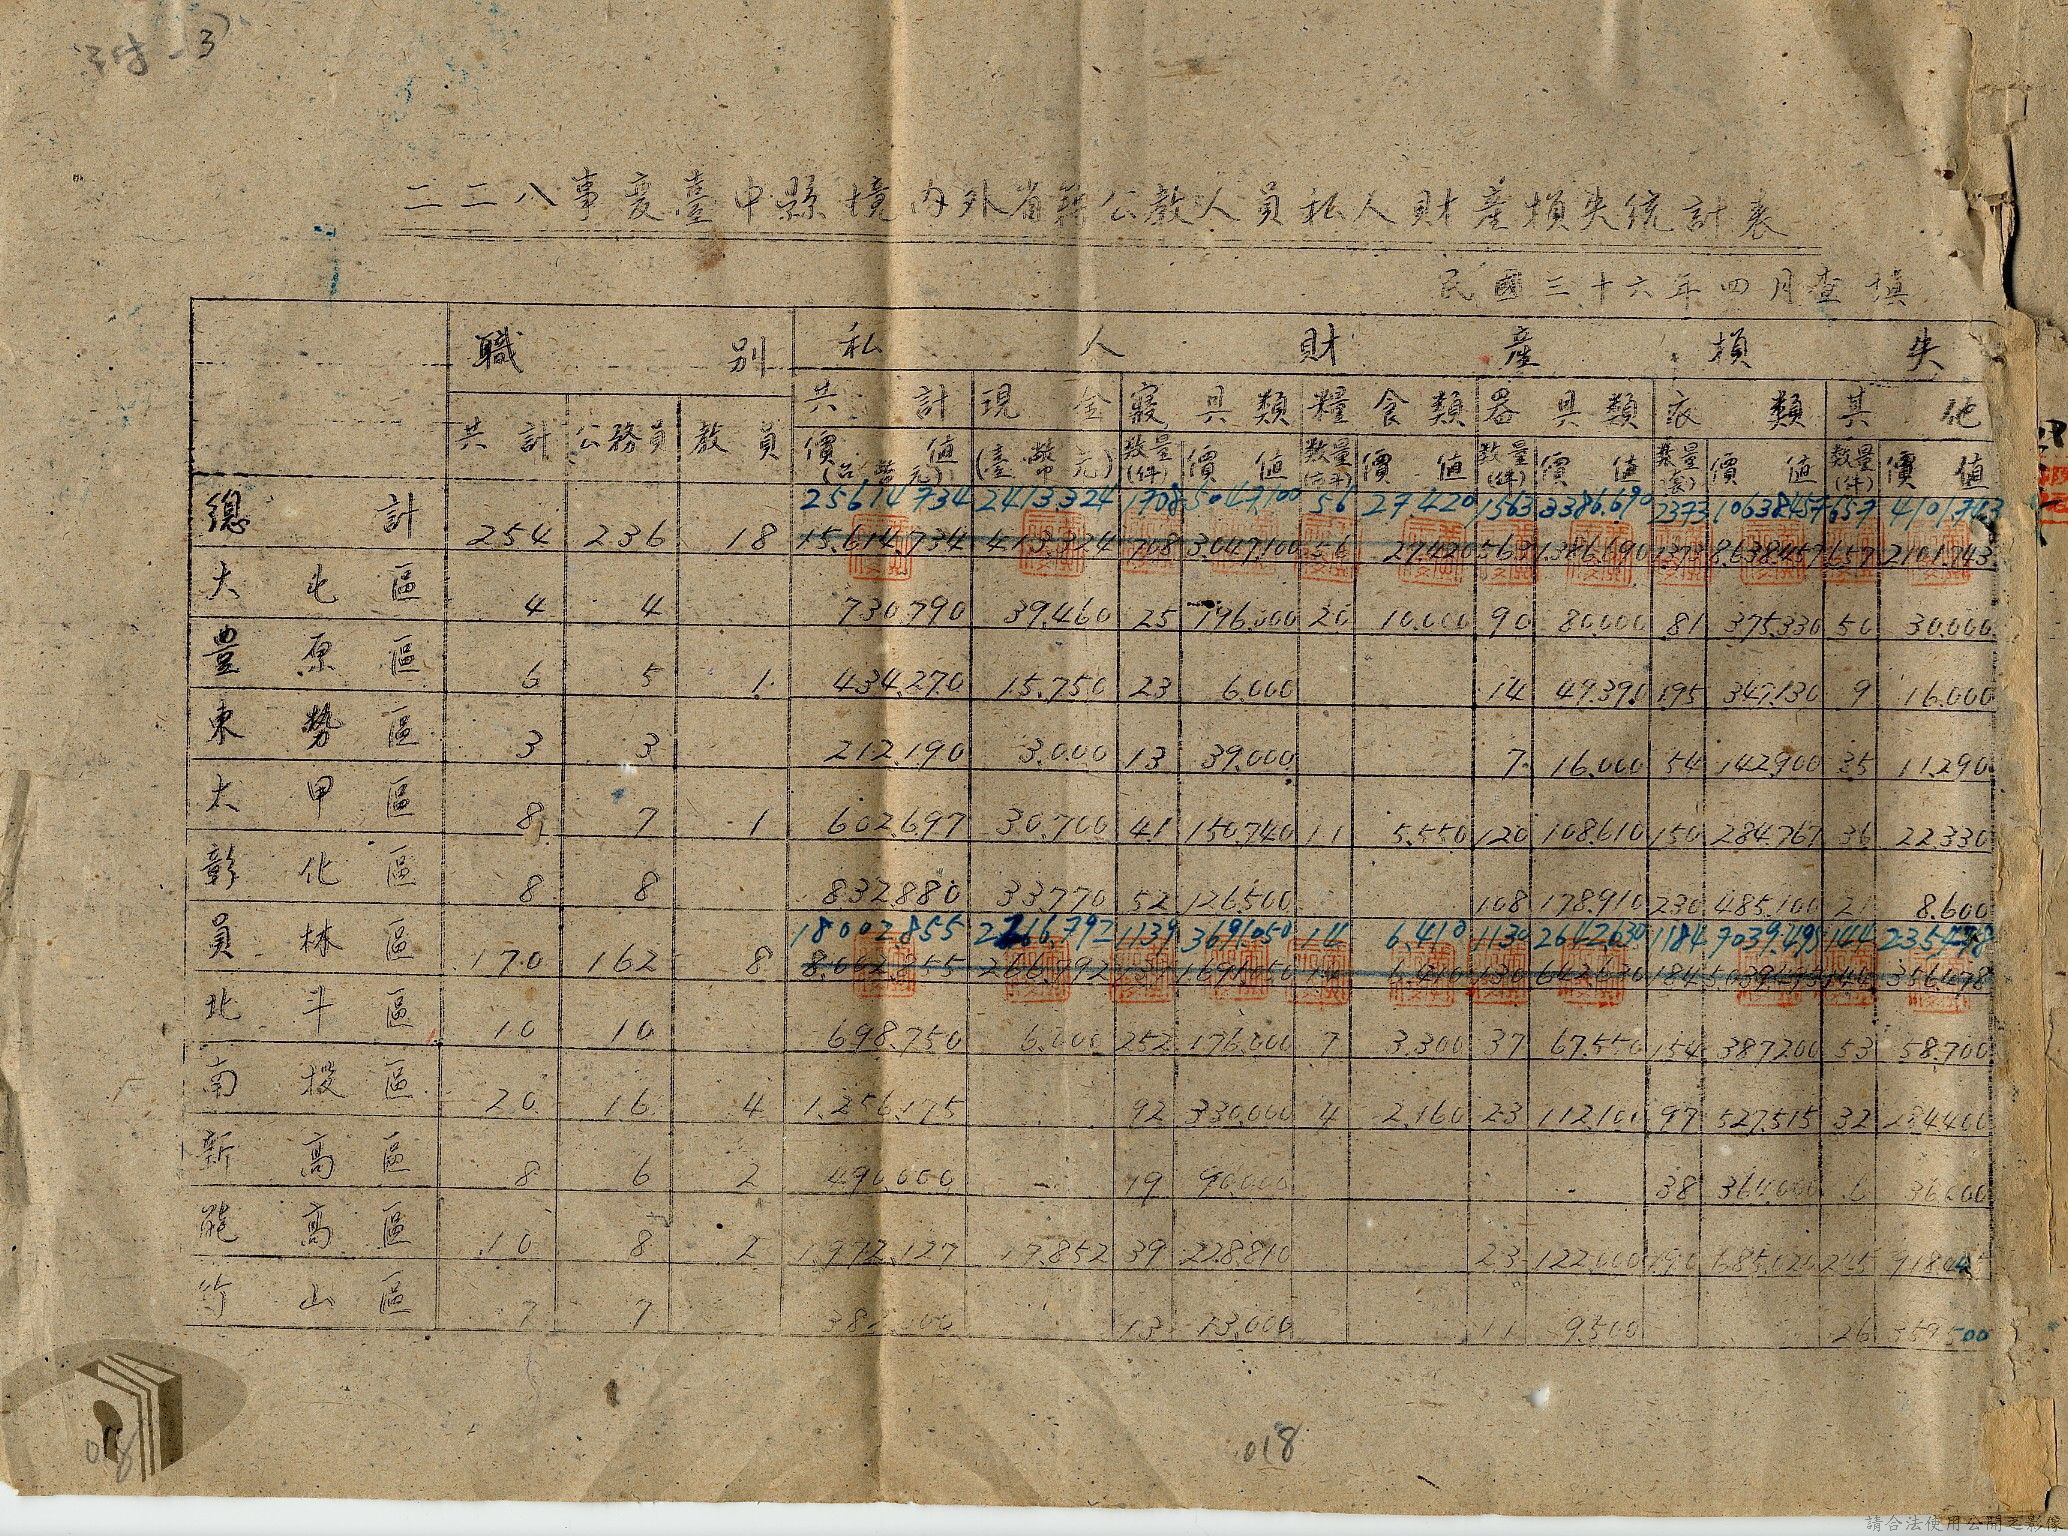 附-3
二二八事變臺中縣境內外省籍公教人員私人財產損失統計表
民國三十六年四月查填
職別 私人財產損失
共計 現金 寢具類 糧食類 器具類 衣類 其他
共計 公務員 教員 價值 (台幣元) (臺幣元) 數量(件) 價值 數量(市斗) 價值 數量(件) 價值 數量(套) 價值 數量(件) 價值
25614734 2413324 1708 5047,100 56 27420 1563 3386,690 2373 10638457 657 4101743
總計 254 236 18 15.614.734 413.324 708 3.047.100 56 27.420 563 1.386.690 1373 8.638.457 657 2.101.743
大屯區 4 4 730.790 39.460 25 196.000 20 10.000 90 80.000 81 375.330 50 30.000
豊原區 6 5 1 434.270 15.750 23 6.000 14 49.390 195 347.130 9 16.000
東勢區 3 3 212.190 3.000 13 39.000 7 16.000 54 142.900 35 11.290
大甲區 8 7 1 602.697 30.700 41 150.740 11 5.550 120 108.610 150 284.767 36 22.330
彰化區 8 8 832.880 33.770 52 126.500 108 178.910 230 485.100 21 8.600
18002.855 2266.792 1139 3691.050 14 6,410 1130 2642630 1184 7039.495 144
員林區 170 162 8 8.002.855 266.792 139 1.691.050 14 6.410 130 642.630 184 356.478
北斗區 10 10 698.750 6.000 252 176.000 7 3.300 37 67.550 154 387.200 53 58.700
南投區 20 16 4 1.256.175 92 330.000 4 2.160 23 112.100 97 527.515 32 284.400
新高區 8 6 2 490.000 19 90.000 38 364.000 6 36.000
能高區 10 8 2 1.972.127 17.852 39 228.810 23 122.000 190 685.020
竹山區 7 7 13 13.000 11 9.500 26 359.500
018
018
請合法使用公開之影像